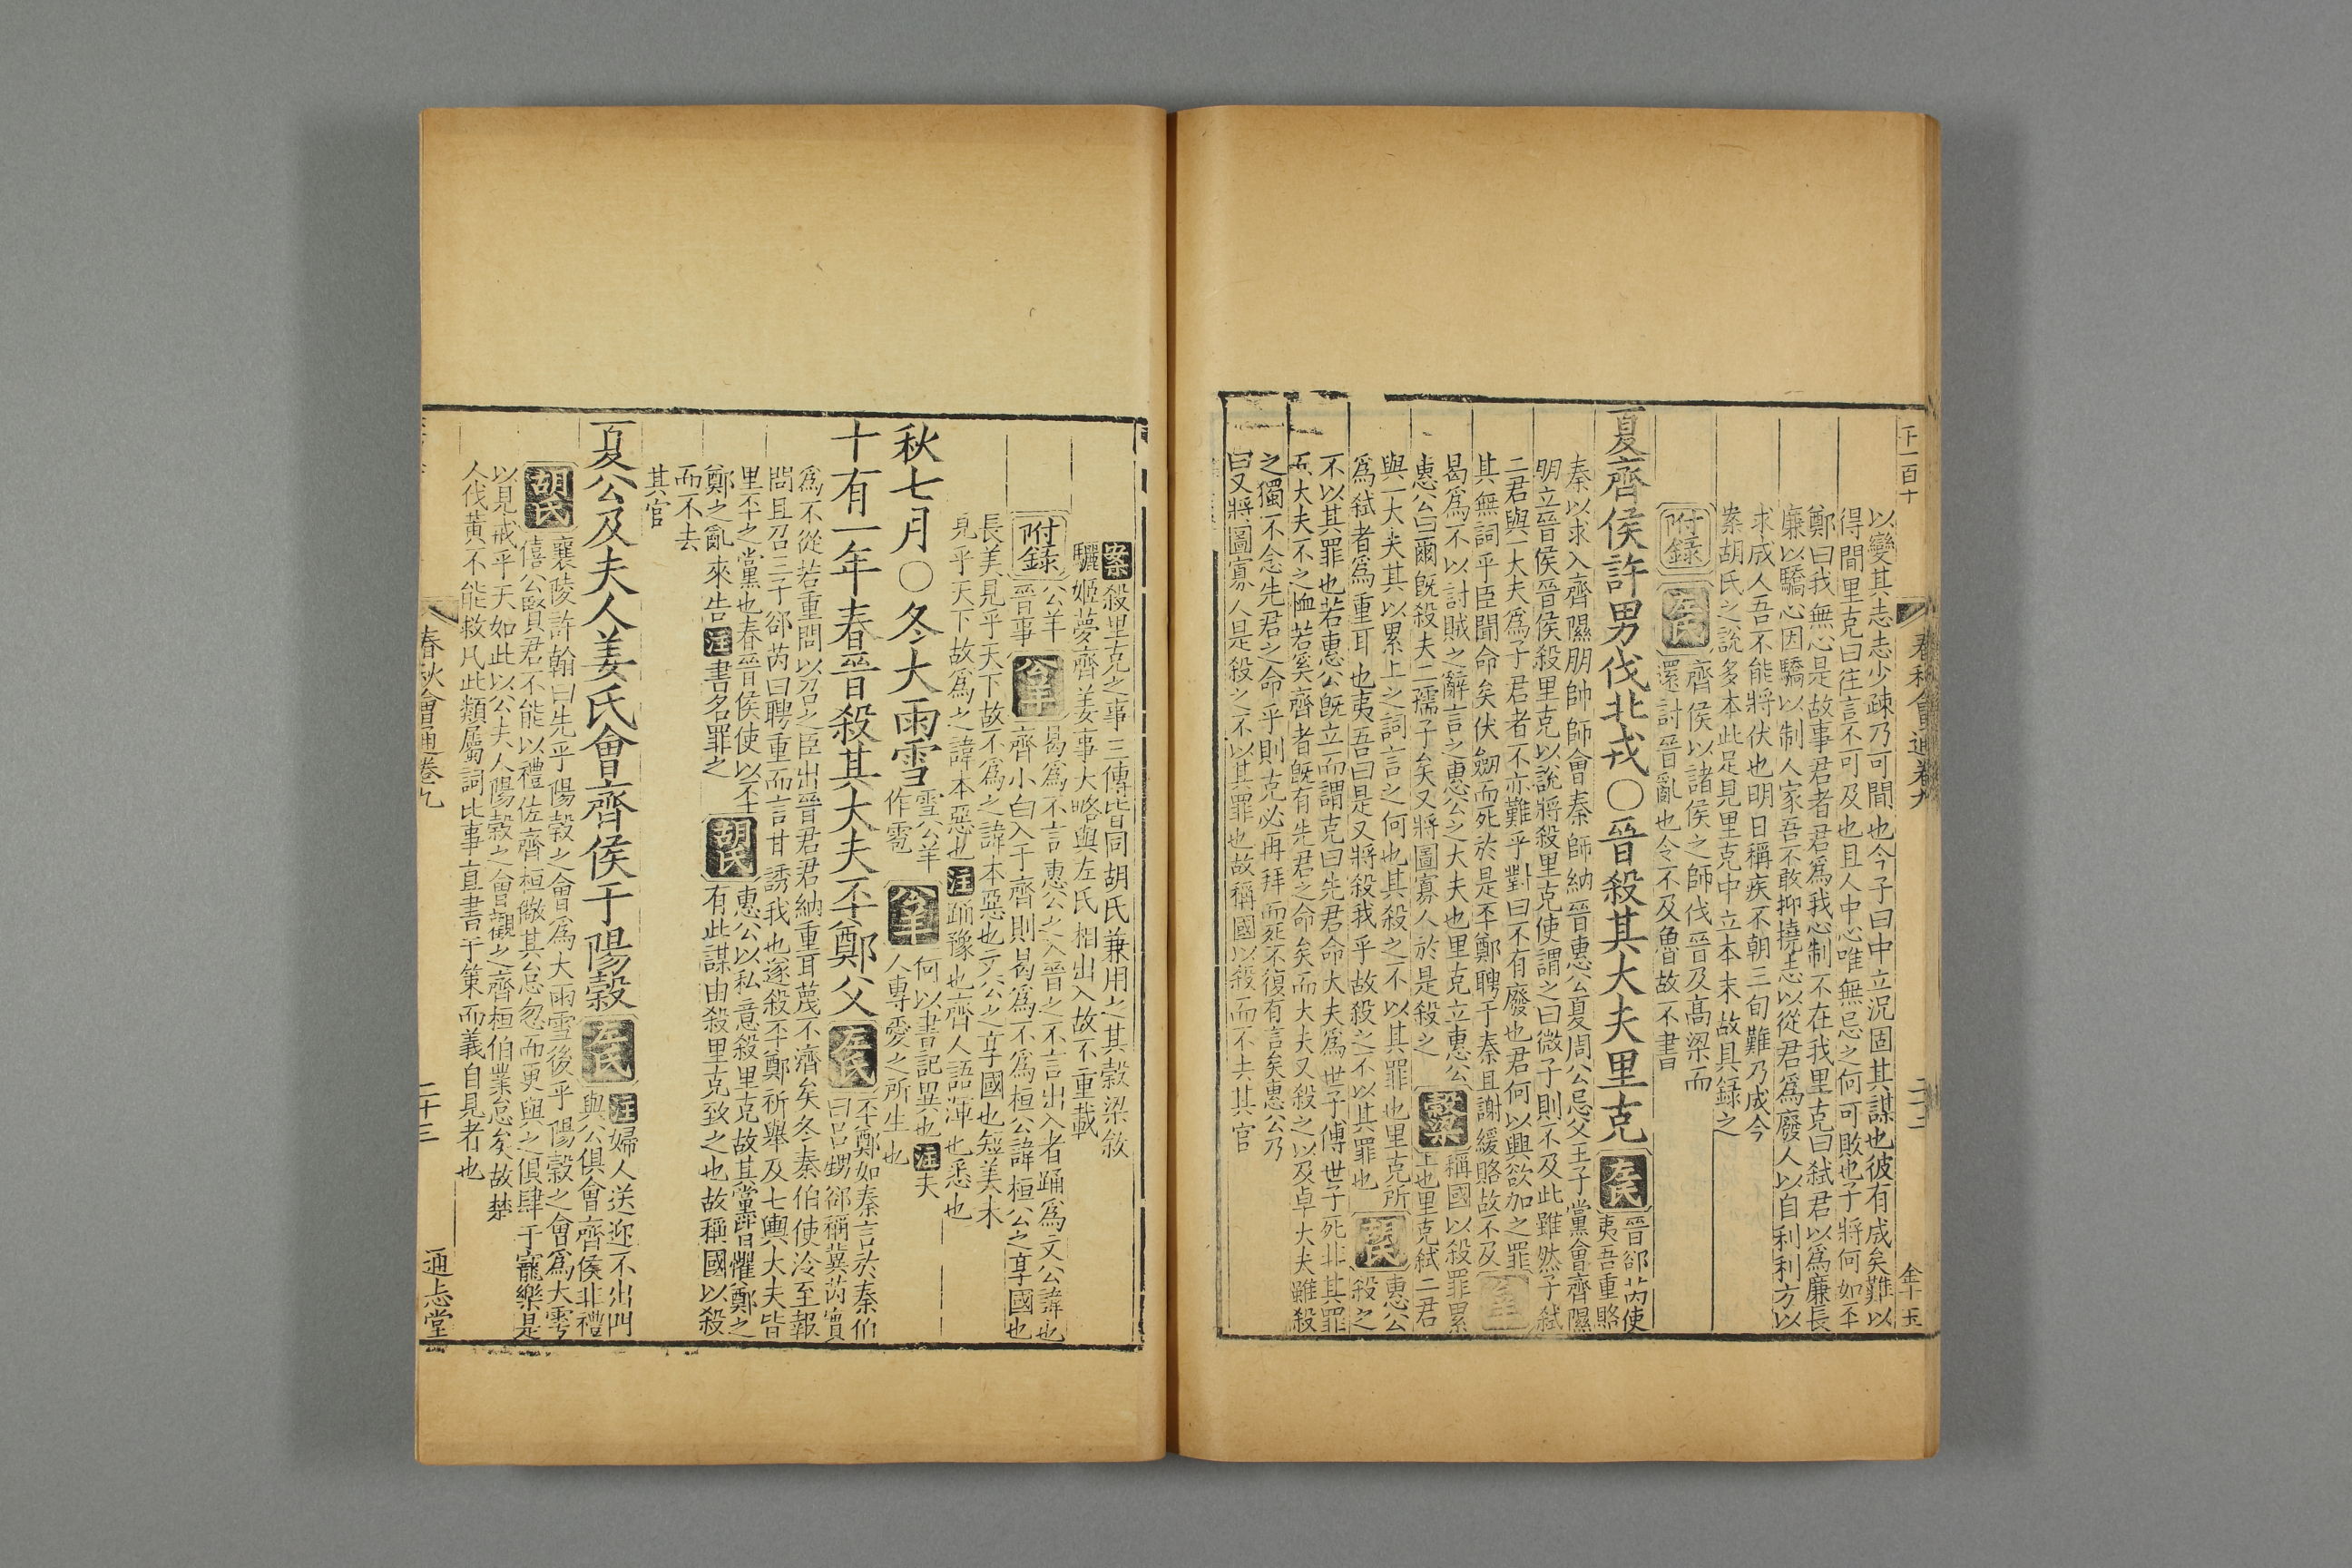 春秋會通卷九
以變其志志少疎乃可間也今子曰中立況固其謀也彼有成矣難以
得間里克曰往言不可及也且人中心唯無忌之何可敗也子將何如丕
鄭曰我無心是故事君者君爲我心制不在我里克曰弑君以爲廉長
廉以驕心因驕以制人家吾不敢抑撓志以從君爲廢人以自利利方以
求成人吾不能將伏也明日稱疾不朝三旬難乃成今
案胡氏之說多本此足見里克中立本末故具録之
附録 左氏 齊侯以諸侯之師伐晉及高梁而
還討晉亂也令不及魯故不書
夏齊侯許男伐北戎〇晉殺其大夫里克 左氏 晉郤芮使
夷吾重賂
秦以求入齊隰朋帥師會秦師納晉惠公夏周公忌父王子黨會齊隰
朋立晉侯晉侯殺里克以說將殺里克使謂之曰微子則不及此雖然子弑
二君與一大夫爲子君者不亦難乎對曰不有廢也君何以興欲加之罪
其無詞乎臣聞命矣伏劔而死於是丕鄭聘于秦且謝緩賂故不及 公羊
曷爲不以討賊之辭言之惠公之大夫也里克立惠公 穀梁 稱國以殺罪累
惠公曰爾旣殺夫二孺子矣又將圖寡人於是殺之 上也里克弑二君
與一大夫其以累上之詞言之何也其殺之不以其罪也里克所
爲弑者爲重耳也夷吾曰是又將殺我乎故殺之不以其罪也 胡氏 惠公
殺之
不以其罪也若惠公旣立而謂克曰先君命大夫爲世子傅世子死非其罪
而大夫不之恤若奚齊者旣有先君之命矣而大夫又殺之以及卓大夫雖殺
之獨不念先君之命乎則克必再拜而死不復有言矣惠公乃
曰又將圖寡人是殺之不以其罪也故稱國以殺而不去其官
案 殺里克之事三傳皆同胡氏兼用之其穀梁敘
驪姬夢齊姜事大略與左氏相出入故不重載
附録 公羊 曷爲不言惠公之入晉之不言出入者踊爲文公諱也
晉事 公羊 齊小白入于齊則曷爲不爲桓公諱桓公之享國也
長美見乎天下故不爲之諱本惡也文公之享國也短美未
見乎天下故爲之諱本惡也 注 踊豫也齊人語渾也悉也
秋七月〇冬大雨雪 雪公羊作雹 公羊 何以書記異也 注 夫
人專愛之所生也
十有一年春晉殺其大夫丕鄭父 左氏 丕鄭如秦言於秦伯
曰呂甥郤稱冀芮實
爲不從若重問以召之臣出晉君君納重耳蔑不濟矣冬秦伯使泠至報
問且召三子郤芮曰聘重而言甘誘我也遂殺丕鄭祈舉及七輿大夫皆
里丕之黨也春晉侯使以丕 胡氏 惠公以私意殺里克故其黨皆懼鄭之
鄭之亂來告 注 書名罪之 有此謀由殺里克致之也故稱國以殺
而不去
其官
夏公及夫人姜氏會齊侯于陽穀 左氏 注 婦人送迎不出門
與公俱會齊侯非禮
胡氏 襄陵許翰曰先乎陽穀之會爲大雨雪後乎陽穀之會爲大雩
僖公賢君不能以禮佐齊桓儆其怠忽而更與之俱肆于寵樂是
以見戒乎天如此以公夫人陽穀之會觀之齊桓伯業怠矣故楚
人伐黃不能救凡此類屬詞比事直書于策而義自見者也
春秋會通卷九
二十三
通志堂